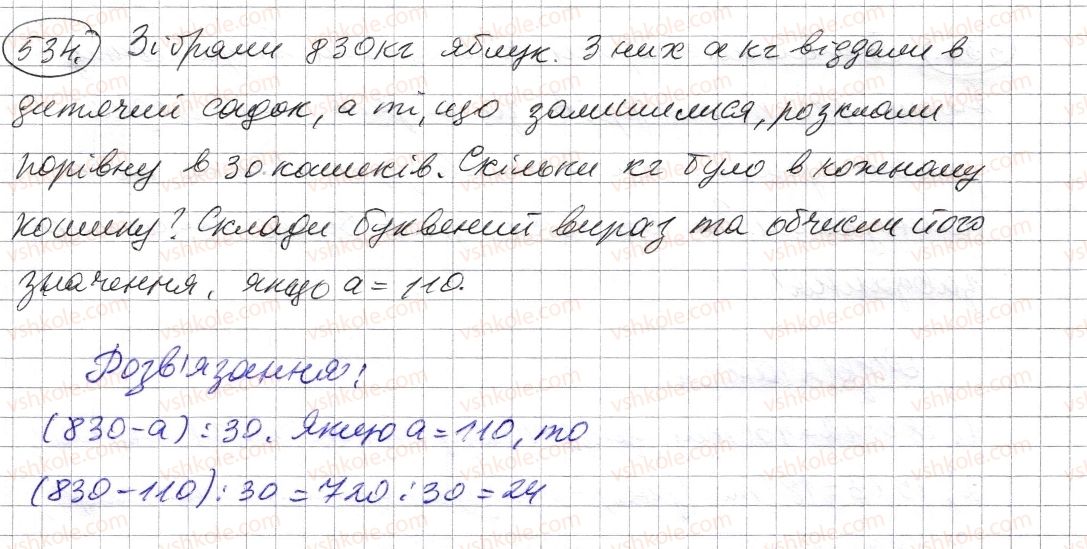 534. Зібрали 830 кг яблук. З них а кг віддали в
дитячий садок, а ті, що залишилися, розклали
порівну в 30 кошиків. Скільки кг було в кожному
кошику? Склади буквений вираз та обчисли його
значення, якщо а = 110.
Розв'язання:
(830-а) : 30. Якщо а = 110, то
(830-110) : 30 = 720 : 30 = 24